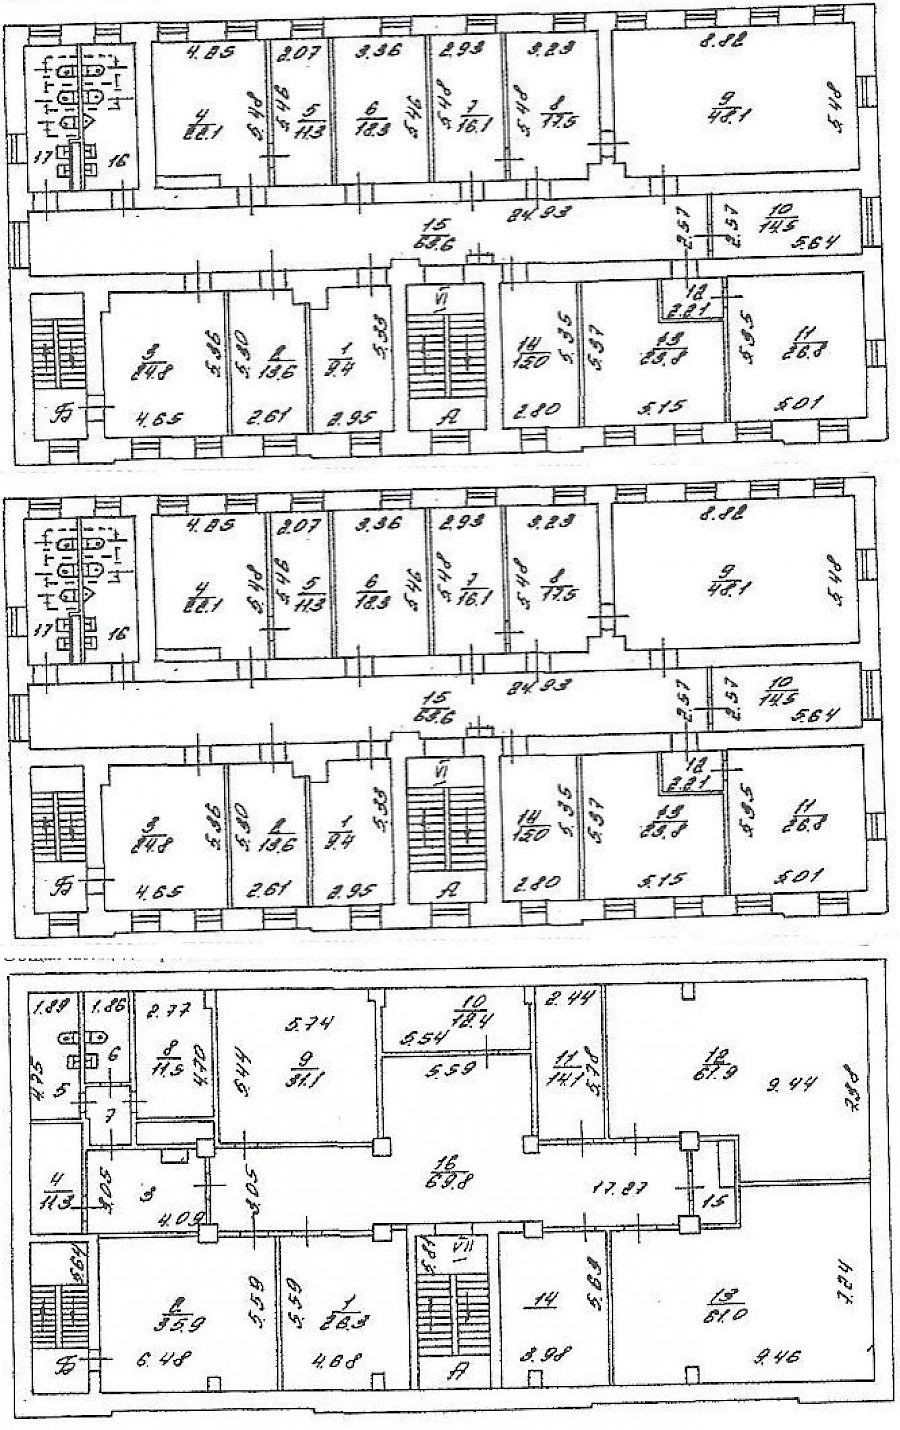 4.85 2.07 3.36 2.93 3.23 8.82
4
22.1
5.48
5.46
5
11.3
6
18.3
5.46
5.48
7
16.1
5.48
8
17.5
9
48.1
5.48
17 16
15
63.6
24.93
2.57 2.57
10
14.5
5.64
VI
12
2.21
3
24.8
5.36
5.30
2
13.6
1
9.4
5.33
14
15.0
5.35
5.37
13
23.8
5.35
11
26.8
Б 4.65 2.61 2.95 А 2.80 5.15 5.01
4.85 2.07 3.36 2.93 3.23 8.82
4
22.1
5.48
5.46
5
11.3
6
18.3
5.46
5.48
7
16.1
5.48
8
17.5
9
48.1
5.48
17 16
15
63.6
24.93
2.57 2.57
10
14.5
5.64
VI
12
2.21
3
24.8
5.36
5.30
2
13.6
1
9.4
5.33
14
15.0
5.35
5.37
13
23.8
5.35
11
26.8
Б 4.65 2.61 2.95 А 2.80 5.15 5.01
1.89 1.86 2.77 5.74
10
12.4
2.44
4.75 5 6
8
11.5
4.70
5.44
9
31.1
5.54
5.59
11
14.1
5.78
12
61.9
9.44
7.98
7
4
11.3
3.05
3
4.09
3.05
16
69.8
17.27
15
5.64
2
35.9
5.59
5.59
1
26.3
5.81
VII
14
5.63
13
61.0
7.24
Б 6.48 4.68 А 3.98 9.46